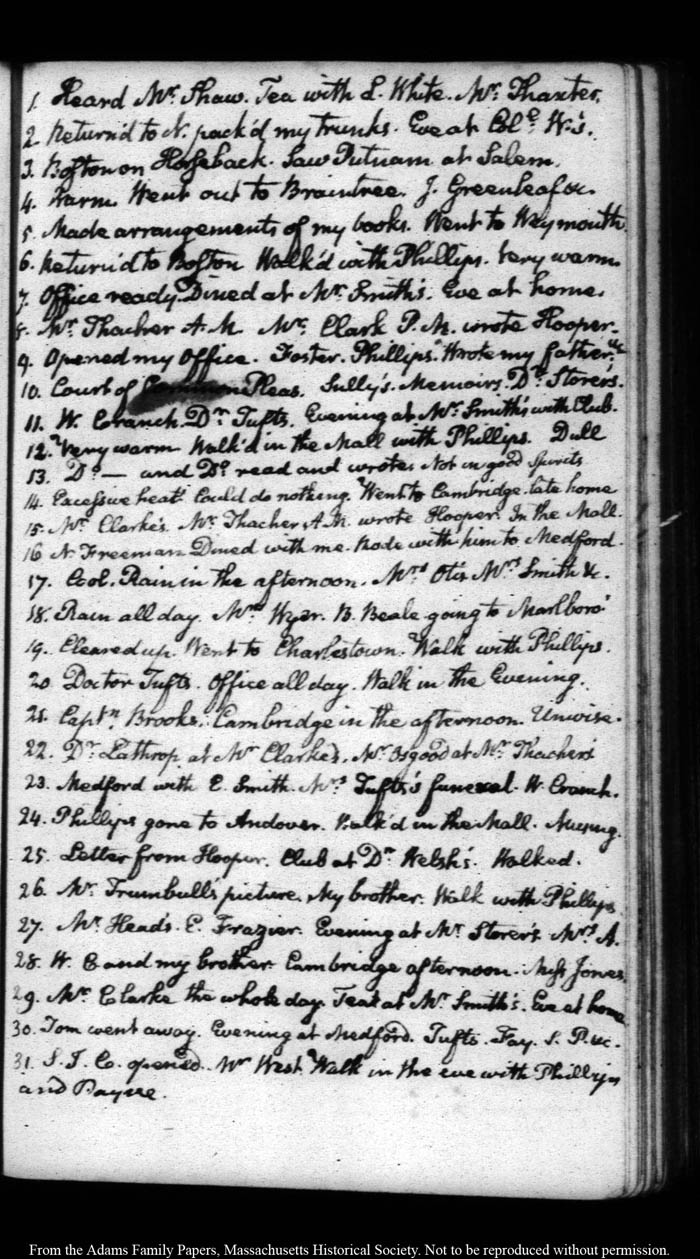 1. Heard Mr. Shaw. Tea with L. White. Mr. Thaxter.
2 Return'd to N. pack'd my trunks. Eve at Colo. W's.
3. Boston on Horseback. Saw Putnam at Salem.
4. Warm Went out to Braintree. J. Greenleaf &c.
5. Made arrangements of my books. Went to Weymouth
6. Return'd to Boston Walk'd with Phillips. Very warm
7. Office ready. Dined at Mr. Smith's. Eve at home.
8. Mr. Thacher A.M. Mr. Clark P.M. wrote Hooper.
9. Opened my office. Foster. Phillips. Wrote my father. &c
10. Court of Common Pleas. Sully's Memoirs. Dr. Storer's.
11. W. Cranch. Dr. Tufts. Evening at Mr. Smith's with Club.
12. Very warm Walk'd in the Mall with Phillips. Dull
13. Do — and Do. read and wrote. Not in good Spirits
14. Excessive heat. Could do nothing. Went to Cambridge. late home
15. Mr. Clarke's. Mr. Thacher A.M. wrote Hooper. In the Mall.
16 N. Freeman Dined with me. Rode with him to Medford.
17. Cool. Rain in the afternoon. Mrs. Otis Mrs. Smith &c.
18. Rain all day. Mr. Wyer. B. Beale going to Marlboro'
19. Cleared up. Went to Charlestown. Walk with Phillips.
20. Doctor Tufts. Office all day. Walk in the Evening.
21. Captn. Brooks. Cambridge in the afternoon. Unwise.
22. Dr. Lathrop at Mr Clarke's. Mr. Osgood at Mr. Thacher's
23. Medford with E. Smith. Mrs Tufts's funeral. W. Cranch.
24. Phillips gone to Andover. Walk'd in the Mall. Musing.
25. Letter from Hooper. Club at Dr. Welsh's. Walked.
26. Mr. Trumbull's picture. My brother. Walk with Phillips
27. Mr. Head's. E. Frazier. Evening at Mr. Storer's. Mrs. A.
28. W. C and my brother. Cambridge afternoon. Miss Jones.
29. Mr. Clarke the whole day. Tea at Mr. Smith's. Eve at home
30. Tom went away. Evening at Medford. Tufts. Fay. S. P. &c.
31. S. J. Co. opened. Mr West. Walk in the eve with Phillips
and Payne.
From the Adams Family Papers, Massachusetts Historical Society. Not to be reproduced without permission.